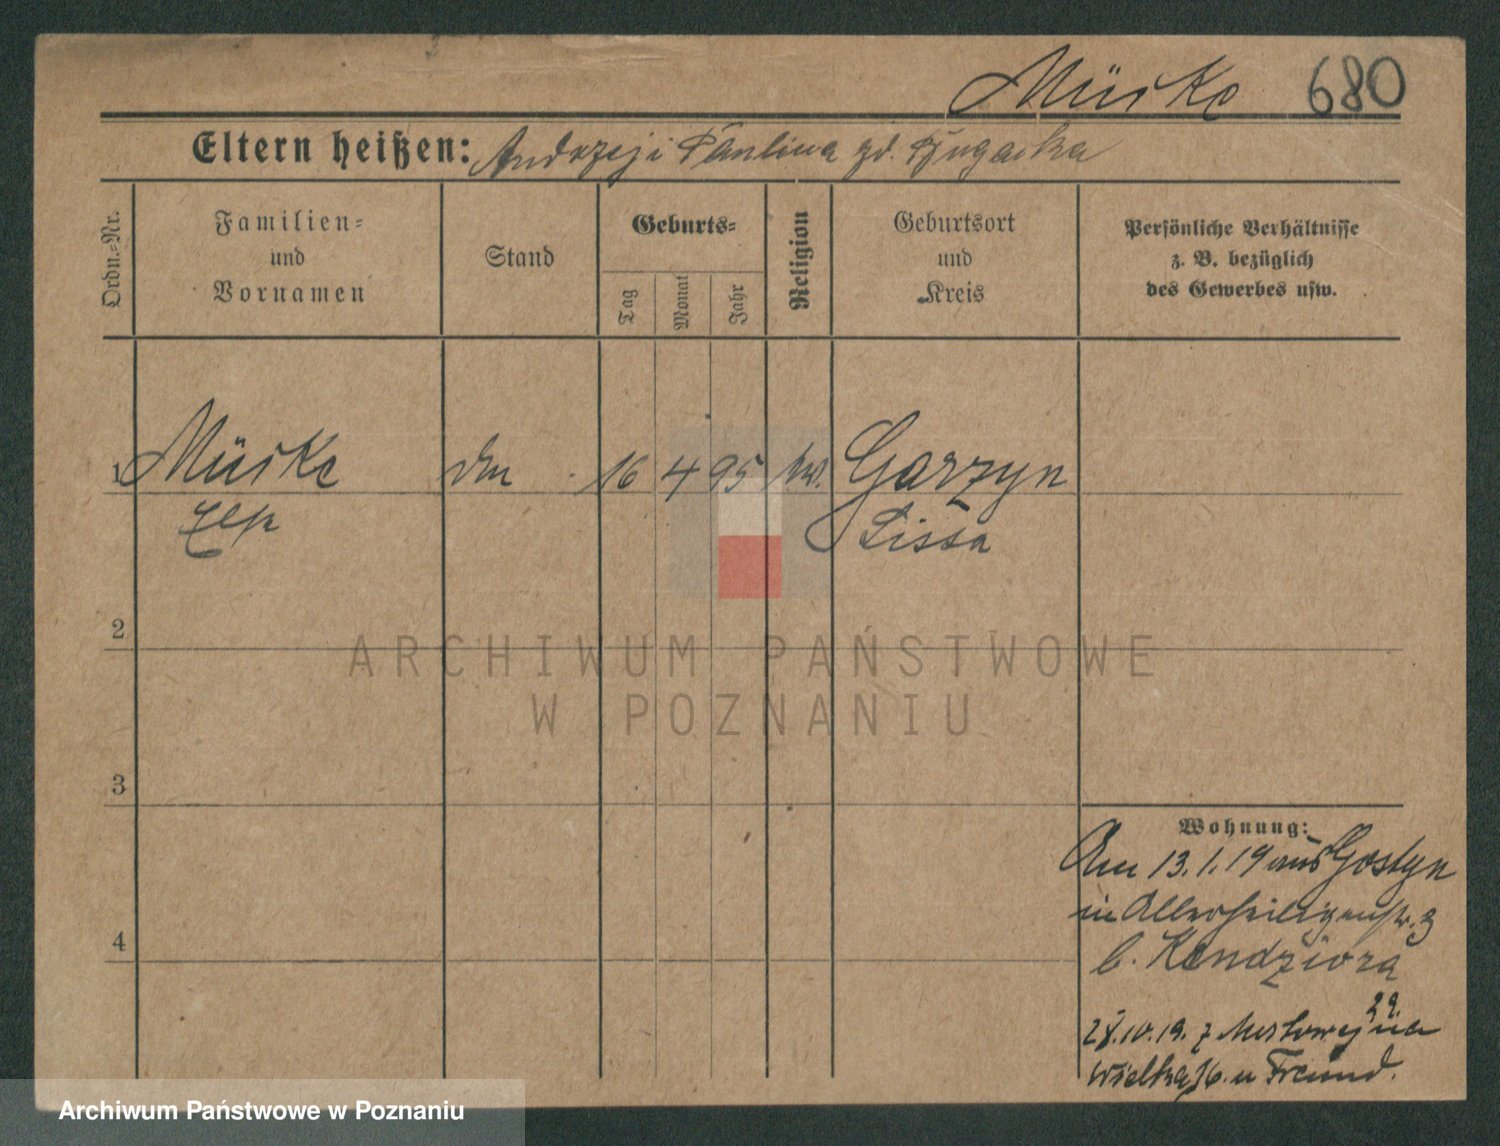 Müske 680
Eltern heißen: Andrzej i Paulina zd.
Ordn.-Nr.
Familien-
und
Vornamen
Stand
Geburts-
Tag
Monat
Jahr
Religion
Geburtsort
und
Kreis
Persönliche Verhältnisse
z. B. bezüglich
des Gewerbes usw.
1 Müske 16 4 95 Garzyn
Lissa
2
3
4
Wohnung:
Am 13.1.19 aus Gostyn
in Allerheiligenstr. 3
b. Kendziora
29.
28.10.19. z Masztowej na
Wielką 16. u Freund.
ARCHIWUM PAŃSTWOWE
W POZNANIU
Archiwum Państwowe w Poznaniu